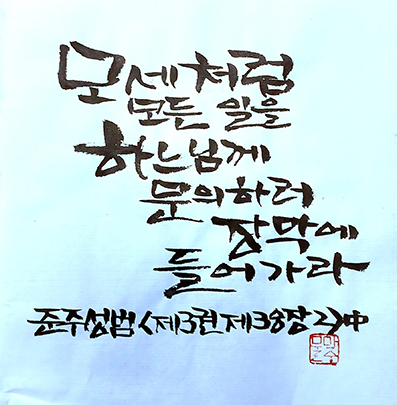 모세처럼
모든 일을
하느님께
문의하러
장막에
들어가라
준주성범 <제3권 제38장 2> 中